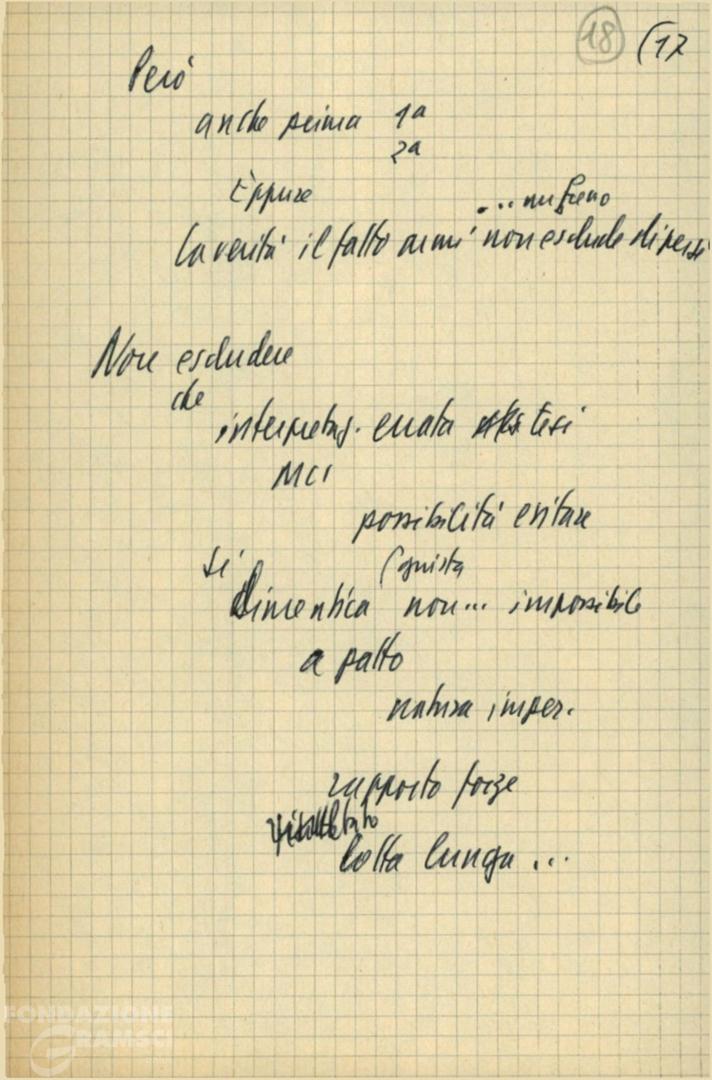 18 (17
Però
anche prima 1ª
2ª
Eppure
... un freno
La verità il fatto armi non esclude di per sé
Non escludere
che
interpretaz. errata tesi
MCI
possibilità evitare
si
(giusta
dimentica non... impossibile
a patto
natura imper.
rapporto forze
risultato
lotta lunga ...
FONDAZIONE
GRAMSCI